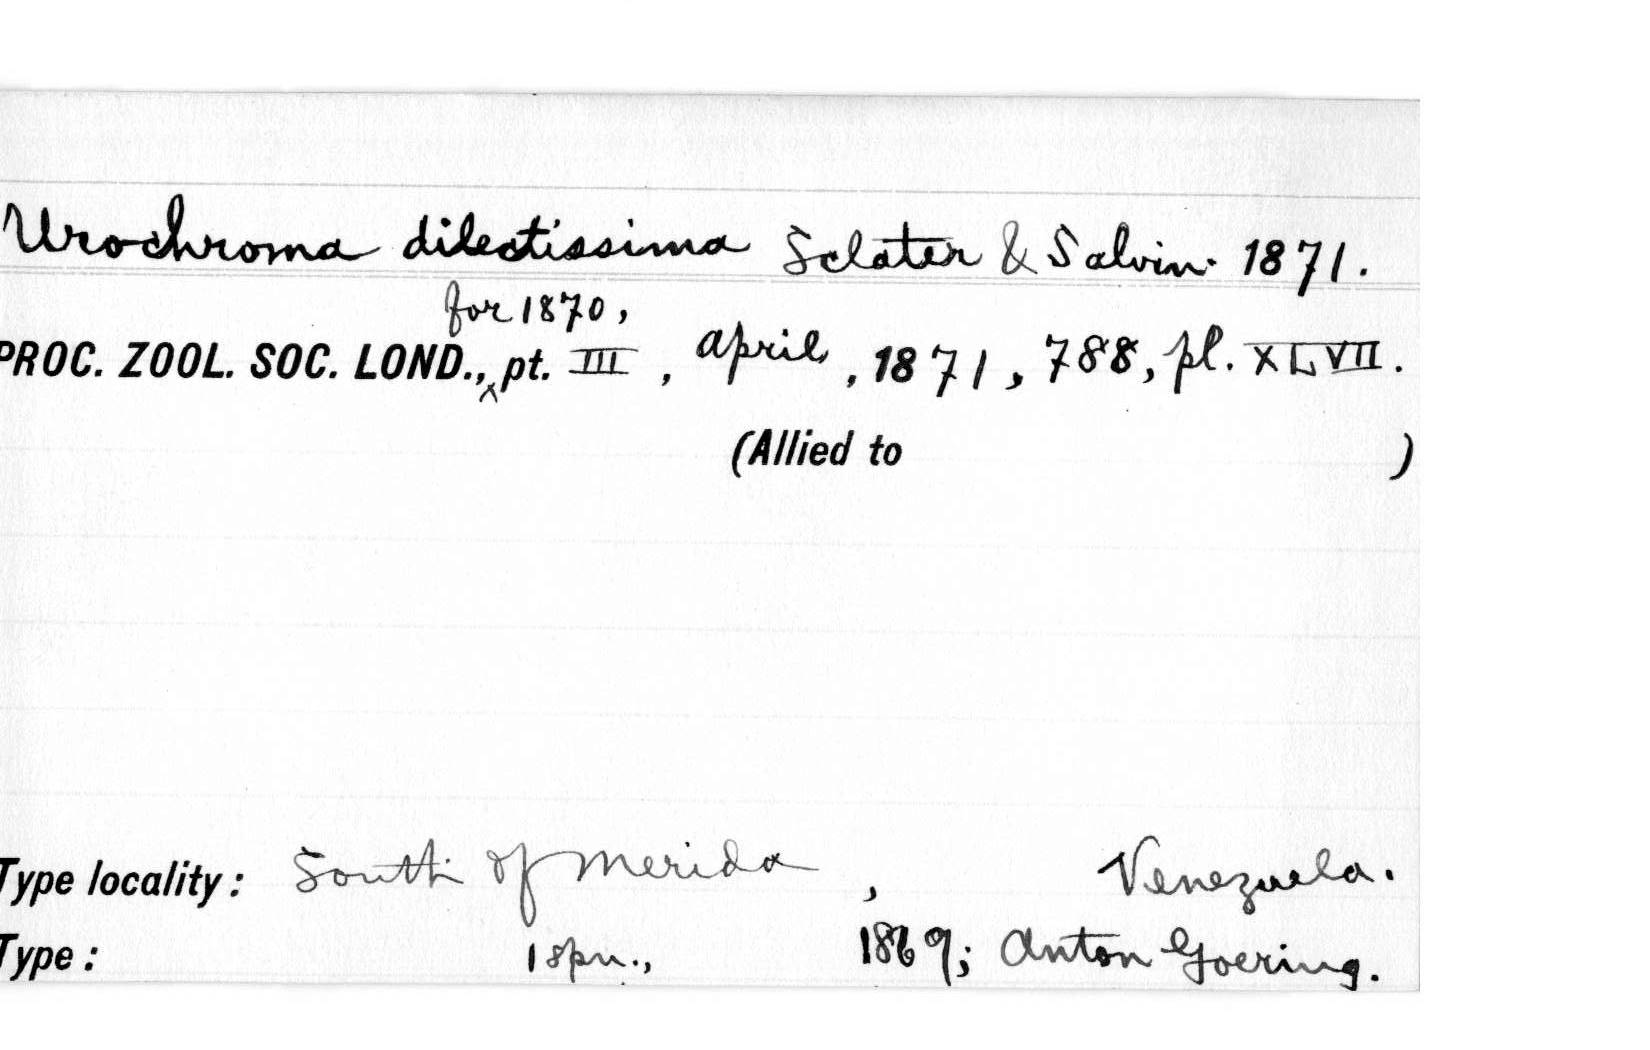 Urochroma dilectissima Sclater & Salvin. 1871.
for 1870,
PROC. ZOOL. SOC. LOND., ^ pt. III, april, 1871, 788, pl. XLVII.
(Allied to )
Type locality: South of Merida, Venezuela.
Type: 1 spn., 1869; Anton Goering.